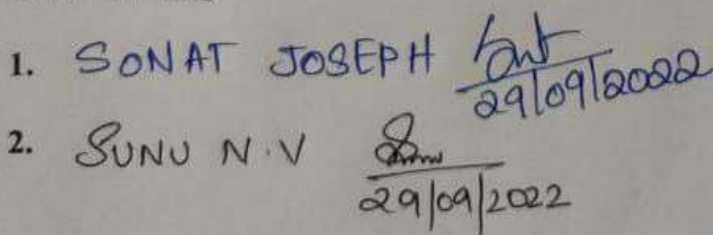 1. SONAT JOSEPH
29/09/2022
2. SUNU N.V
29/09/2022